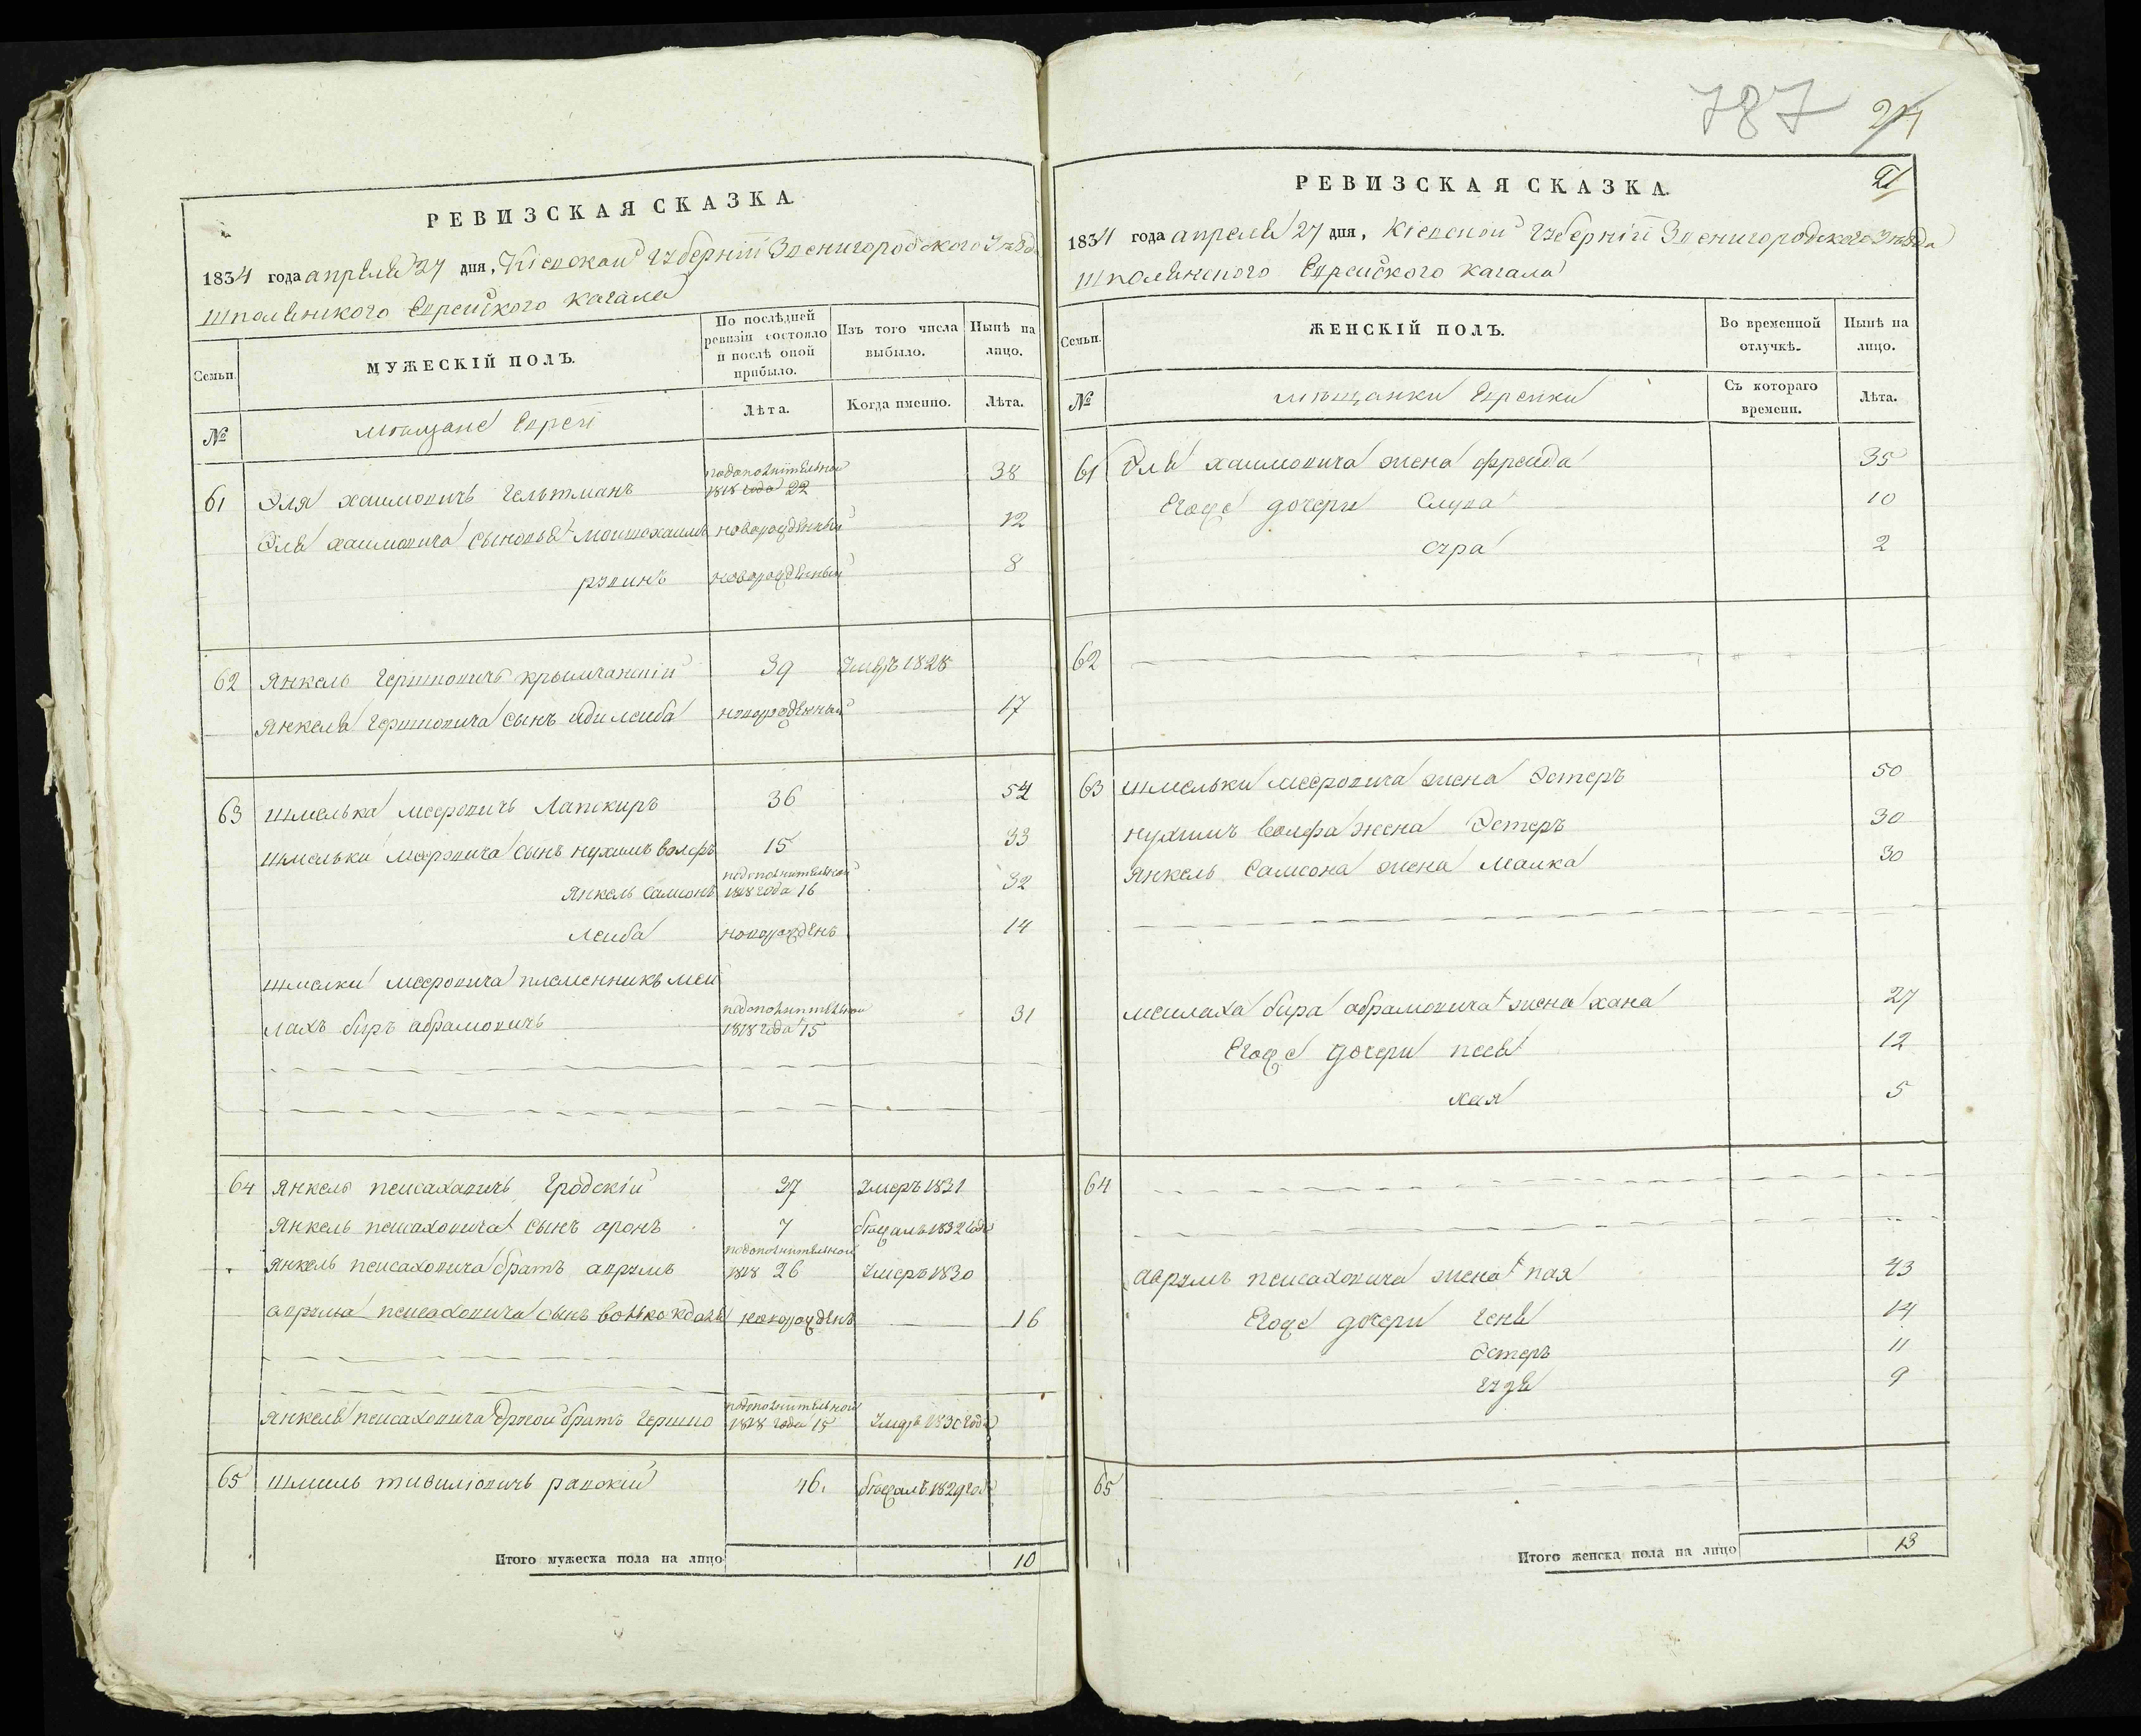 787
24
РЕВИЗСКАЯ СКАЗКА.
1834 года апреля 27 дня, Кіевской Губерніи Звенигородского Уезда
Шполянского Еврейского Кагала
Семьи.
МУЖЕСКІЙ ПОЛЪ.
По послѣдней ревизіи состояло и послѣ оной прибыло.
Изъ того числа выбыло.
Нынѣ на лицо.
№
мещане Евреи
Лѣта.
Когда именно.
Лѣта.
61 Эля хаимовичъ Гельтманъ подополнительной 1818 года 22 38
Эля хаимовича сыновья мошкохаимъ новорожденный 12
рувинъ новорожденный 8
62 Янкель Гершковичъ крымчанскій 39 Умеръ 1828
Янкеля Гершковича сынъ иди лейба новорожденный 17
63 шмелька мееровичъ Лапскиръ 36 54
шмельки мееровича сынъ нухимъ волфъ 15 33
Янкель самсонъ подополнительной 1818 года 16 32
лейба новорожденъ 14
шмелки мееровича племенникъ меи
лахъ биръ абрамовичъ подополнительной 1818 года 15 31
64 Янкель пейсаховичъ Гродскій 27 Умеръ 1831
Янкель пейсаховича сынъ аронъ 7 бежалъ 1832 года
Янкель пейсаховича братъ аврумъ подополнительной 1818 26 Умеръ 1830
аврума пейсаховича сынъ волько новорожденъ 16
Янкеля пейсаховича другой братъ Гершко подополнительной 1818 года 15 Умеръ 1830 года
65 шмиль тивиліовичъ равскій 46. бежалъ 1829 года
Итого мужеска пола на лицо 10
РЕВИЗСКАЯ СКАЗКА.
21
1834 года апреля 27 дня, Кіевской Губерніи Звенигородского Уезда
Шполянского Еврейского Кагала
Семьи.
ЖЕНСКІЙ ПОЛЪ.
Во временной отлучкѣ.
Нынѣ на лицо.
№
мещанки Еврейки
Съ котораго времени.
Лѣта.
61 Эля хаимовича жена фрейда 35
Егоже дочери Слува 10
сура 2
62
63 шмельки мееровича жена Эстеръ 50
нухимъ волфа жена Эстеръ 30
Янкель Самсона жена Малка 30
меилаха бира абрамовича жена хана 27
Егоже дочери песя 12
хая 5
64
аврумъ пейсаховича жена пая 43
Егоже дочери Геня 14
Эстеръ 11
9
65
Итого женска пола на лицо 13